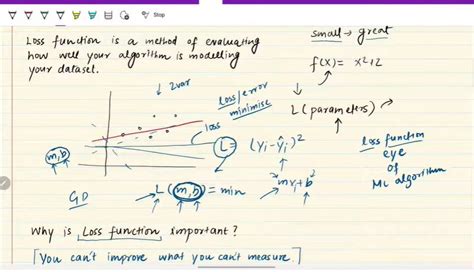 Loss function is a method of evaluating
how well your algorithm is modelling
your dataset.
small → great
f(x) = x²+2
↓ 2var
loss/error
minimise
L (parameters)
loss
L = (yi - ŷi)²
loss function
eye
of
ML algorithm
m,b
mxi + b
2
GD
L (m,b) = min
Why is Loss function important?
[You can't improve what you can't measure]